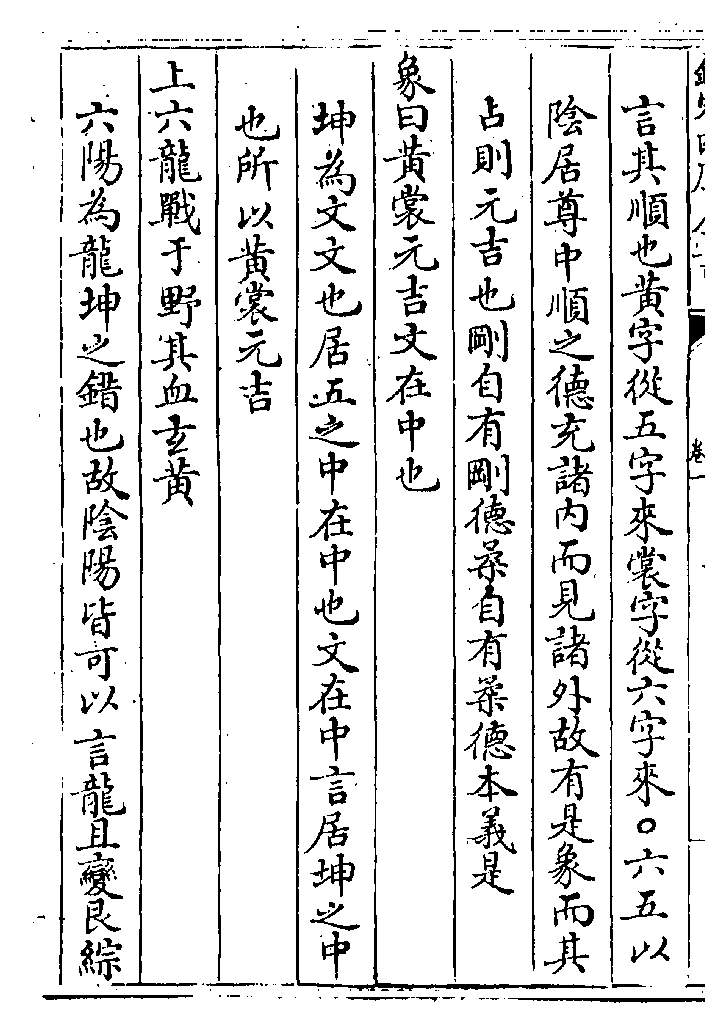 言其順也黄字從五字來裳字從六字來○六五以
陰居尊中順之德充諸内而見諸外故有是象而其
占則元吉也剛自有剛德柔自有柔德本義是
象曰黄裳元吉文在中也
坤為文文也居五之中在中也文在中言居坤之中
也所以黄裳元吉
上六龍戰于野其血玄黄
六陽為龍坤之錯也故陰陽皆可以言龍且變艮綜
卷一